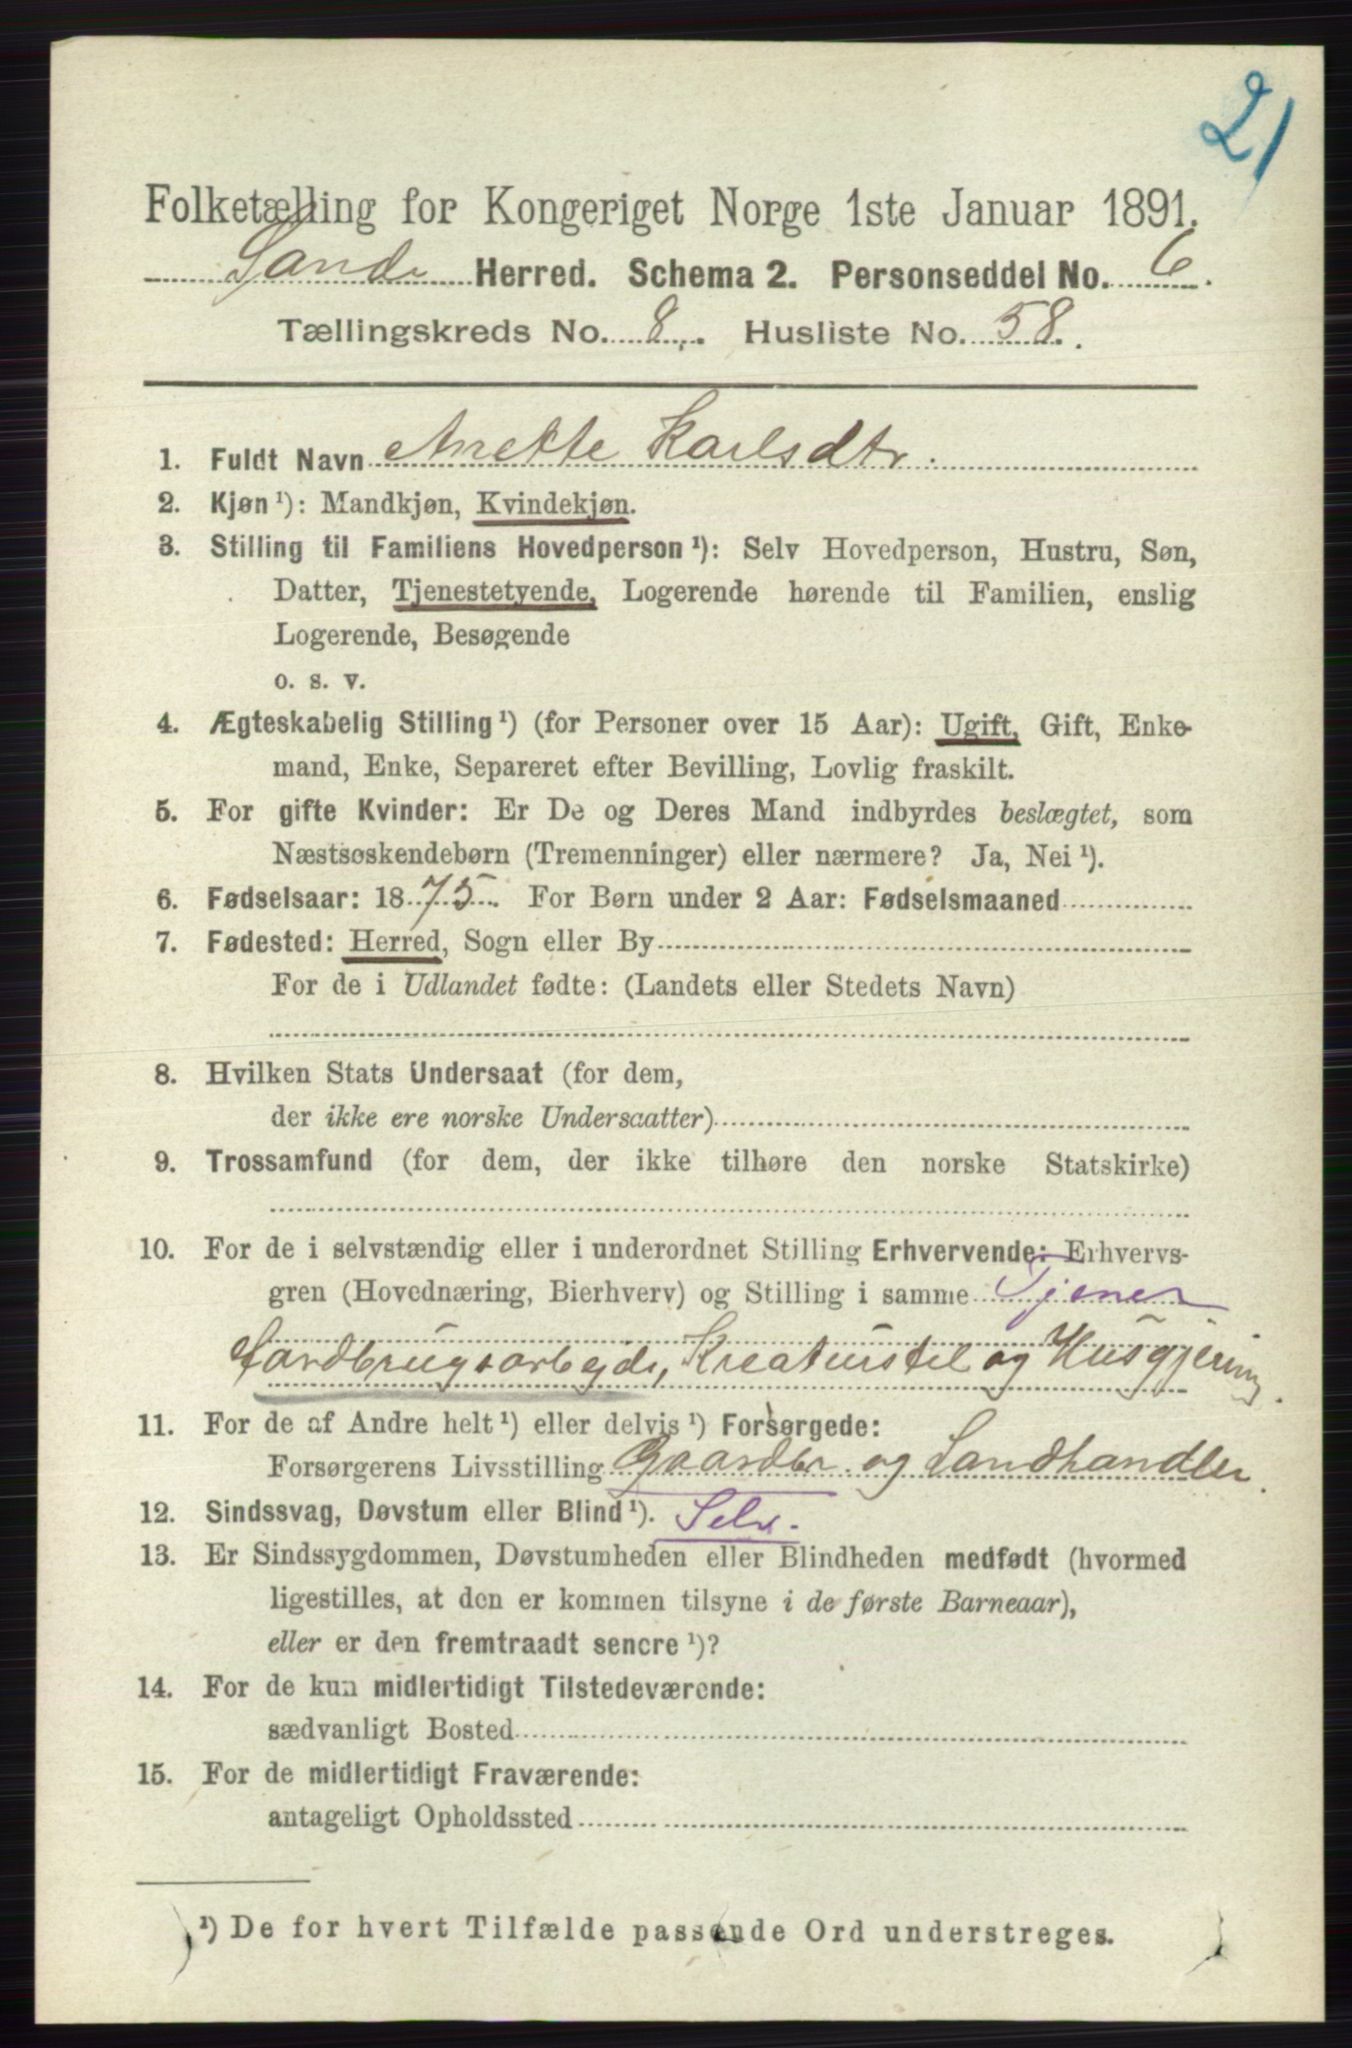 21
Folketælling for Kongeriget Norge 1ste Januar 1891.
Sande Herred. Schema 2. Personseddel No. 6.
Tællingskreds No. 8. Husliste No. 58.
1. Fuldt Navn Anette Karlsdtr.
2. Kjøn ¹): Mandkjøn, Kvindekjøn.
3. Stilling til Familiens Hovedperson ¹): Selv Hovedperson, Hustru, Søn,
Datter, Tjenestetyende, Logerende hørende til Familien, enslig
Logerende, Besøgende
o. s. v.
4. Ægteskabelig Stilling ¹) (for Personer over 15 Aar): Ugift, Gift, Enke-
mand, Enke, Separeret efter Bevilling, Lovlig fraskilt.
5. For gifte Kvinder: Er De og Deres Mand indbyrdes beslægtet, som
Næstsøskendebørn (Tremenninger) eller nærmere? Ja, Nei ¹).
6. Fødselsaar: 1875. For Børn under 2 Aar: Fødselsmaaned
7. Fødested: Herred, Sogn eller By
For de i Udlandet fødte: (Landets eller Stedets Navn)
8. Hvilken Stats Undersaat (for dem,
der ikke ere norske Undersaatter)
9. Trossamfund (for dem, der ikke tilhøre den norske Statskirke)
10. For de i selvstændig eller i underordnet Stilling Erhvervende: Erhvervs-
gren (Hovednæring, Bierhverv) og Stilling i samme Tjener
Jordbrugsarbejde, Kreaturstel og Husgjering.
11. For de af Andre helt ¹) eller delvis ¹) Forsørgede:
Forsørgerens Livsstilling Gaardbr. og Landhandler.
12. Sindssvag, Døvstum eller Blind ¹). Selv.
13. Er Sindssygdommen, Døvstumheden eller Blindheden medfødt (hvormed
ligestilles, at den er kommen tilsyne i de første Barneaar),
eller er den fremtraadt senere ¹)?
14. For de kun midlertidigt Tilstedeværende:
sædvanligt Bosted
15. For de midlertidigt Fraværende:
antageligt Opholdssted
¹) De for hvert Tilfælde passende Ord understreges.